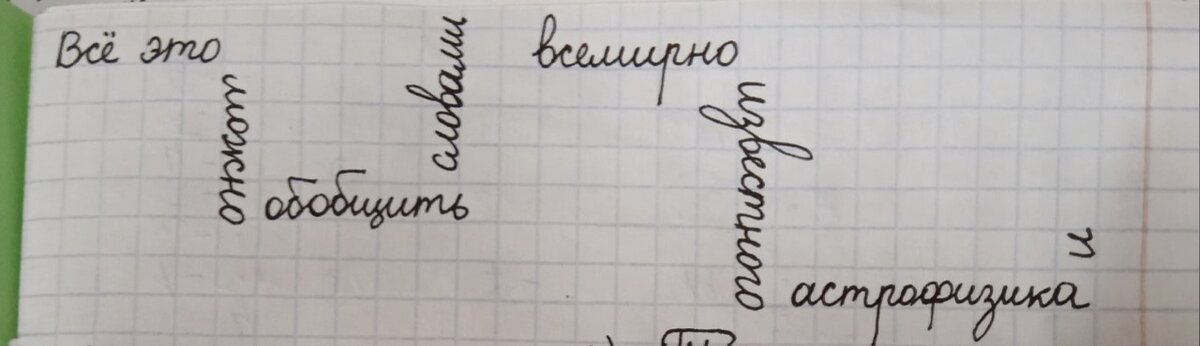 Всё это
можно
обобщить
словами
всемирно
известного
астрофизика
и